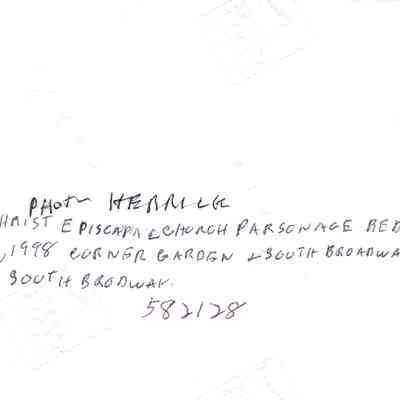 PHOTO HERRICK
HRIST EPISCAPAL CHURCH PARSONAGE RED
, 1998 CORNER GARDEN & SOUTH BROADWA
SOUTH BRODWAY.
582128